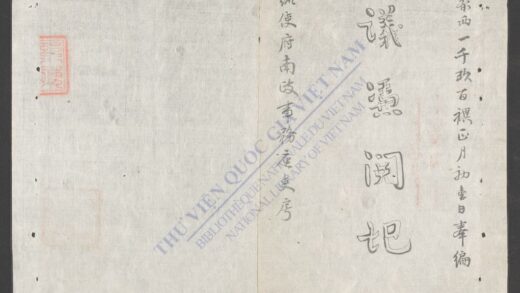 西一千玖百禩正月初壹日奉編
議記
使府南政事務座吏房
THƯ VIỆN QUỐC GIA VIỆT NAM
BIBLIOTHÈQUE NATIONALE DU VIETNAM
NATIONAL LIBRARY OF VIETNAM